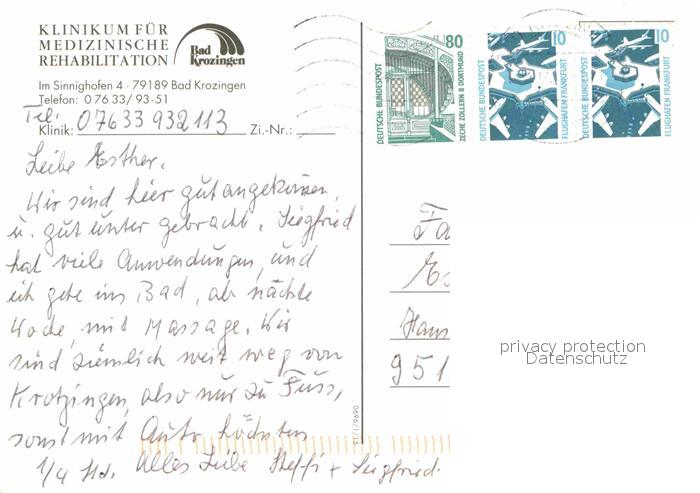 KLINIKUM FÜR
MEDIZINISCHE
REHABILITATION
Bad
Krozingen
Im Sinnighofen 4 · 79189 Bad Krozingen
Telefon: 0 76 33/ 93-51
Tel:
Klinik: 07633 932113 Zi.-Nr.:
Leibe Esther.
Wir sind hier gut angekommen,
u. gut unter gebracht. Siegfried
hat viele Anwendungen, und
ich gehe ins Bad, ab nächte
Woche, mit Massage. Wir
sind ziemlich weit weg von
Krotzingen, also nur zu Fuss,
sonst mit Auto höchsten
1/4 Std. Alles Liebe Steffi + Siegfried.
DEUTSCHE BUNDESPOST
80
ZECHE ZOLLERN II DORTMUND
DEUTSCHE BUNDESPOST
10
FLUGHAFEN FRANKFURT
DEUTSCHE BUNDESPOST
10
FLUGHAFEN FRANKFURT
Fa
Hans
951
privacy protection
Datenschutz